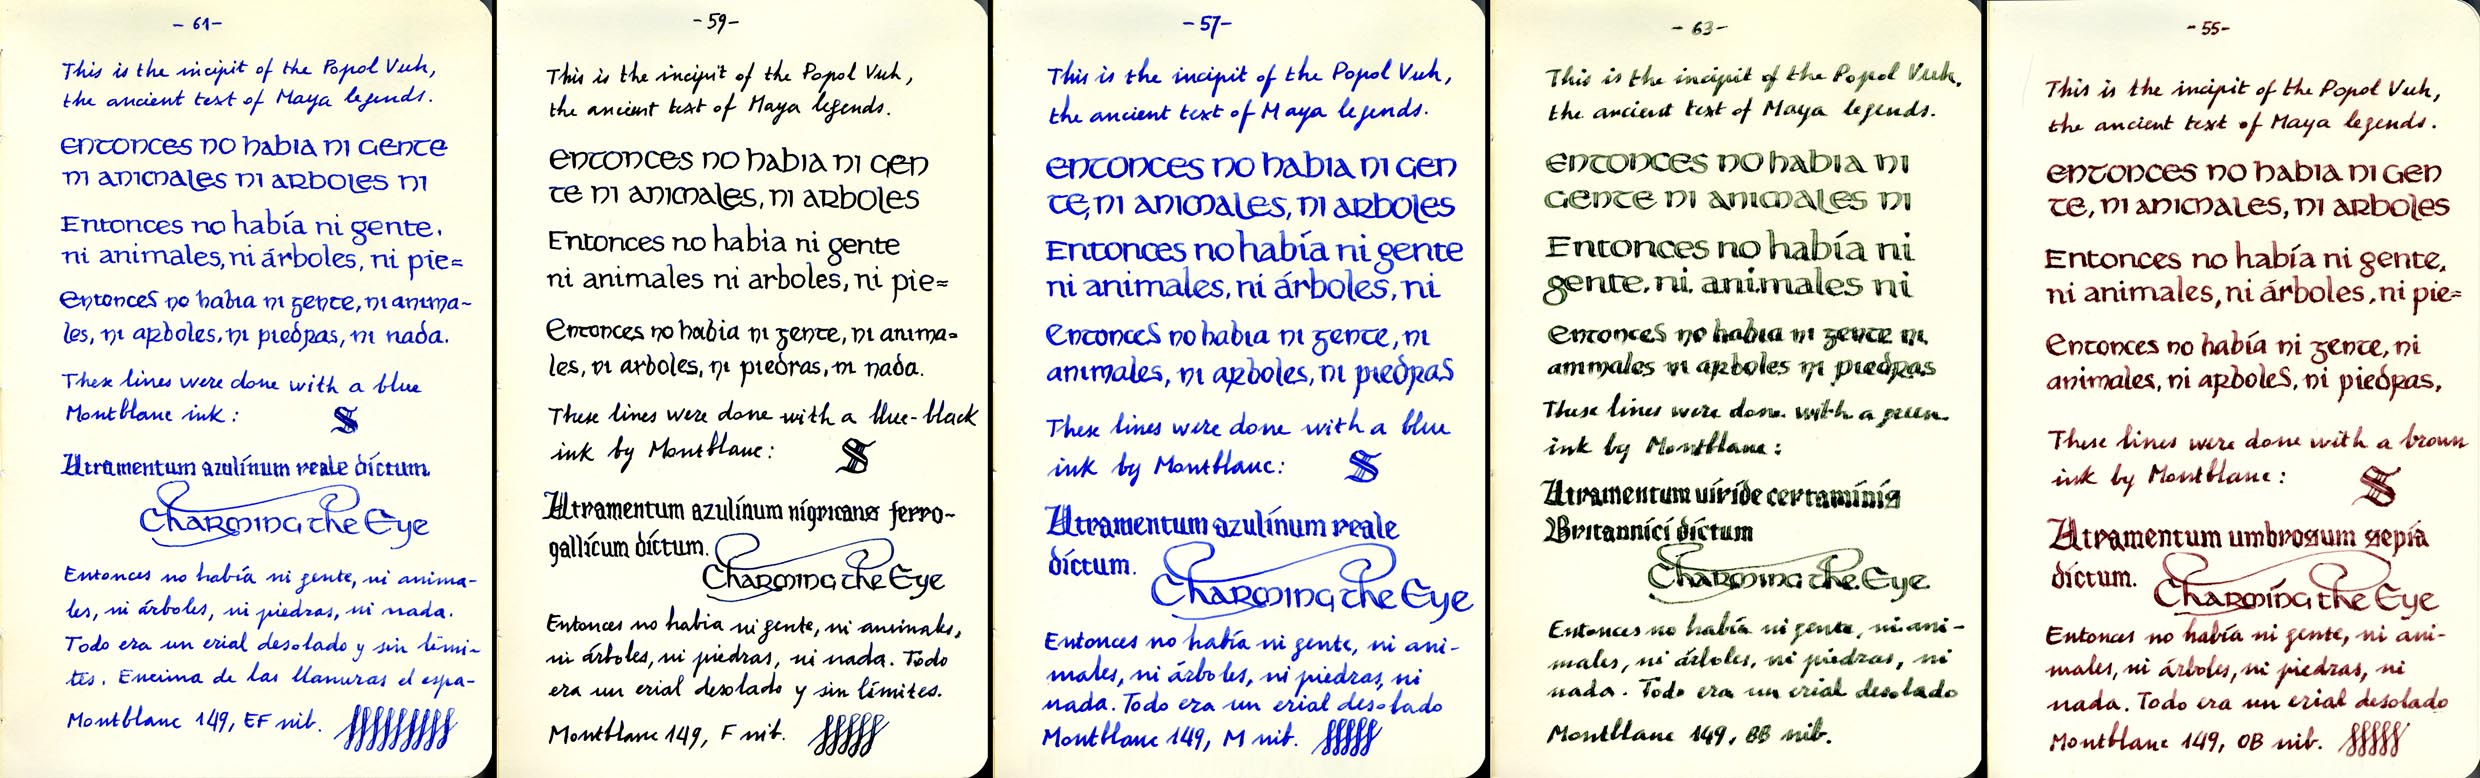 - 61 -
This is the incipit of the Popol Vuh,
the ancient text of Maya legends.
entonces no habia ni gente
ni animales ni arboles ni
Entonces no había ni gente,
ni animales, ni árboles, ni pie=
Entonces no habia ni gente, ni anima-
les, ni arboles, ni piedras, ni nada.
These lines were done with a blue
Montblanc ink: S
Atramentum azulínum reale díctum.
Charming the Eye
Entonces no había ni gente, ni anima-
les, ni árboles, ni piedras, ni nada.
Todo era un erial desolado y sin lími-
tes. Encima de las llanuras el espa-
Montblanc 149, EF nib.
- 59 -
This is the incipit of the Popol Vuh,
the ancient text of Maya legends.
entonces no habia ni gen
te ni animales, ni arboles
Entonces no habia ni gente
ni animales ni arboles, ni pie=
Entonces no habia ni gente, ni anima=
les, ni arboles, ni piedras, ni nada.
These lines were done with a blue-black
ink by Montblanc: S
Atramentum azulínum nígricans ferro-
gallícum díctum.
Charming the Eye
Entonces no habia ni gente, ni animales,
ni árboles, ni piedras, ni nada. Todo
era un erial desolado y sin límites.
Montblanc 149, F nib.
- 57 -
This is the incipit of the Popol Vuh,
the ancient text of Maya legends.
entonces no habia ni gen
te, ni animales, ni arboles
Entonces no había ni gente
ni animales, ni árboles, ni
Entonces no habia ni gente, ni
animales, ni arboles, ni piedras
These lines were done with a blue
ink by Montblanc: S
Atramentum azulínum reale
díctum.
Charming the Eye
Entonces no había ni gente, ni ani-
males, ni árboles, ni piedras, ni
nada. Todo era un erial desolado
Montblanc 149, M nib.
- 63 -
This is the incipit of the Popol Vuh,
the ancient text of Maya legends.
entonces no habia ni
gente ni animales ni
Entonces no había ni
gente, ni animales ni
Entonces no habia ni gente ni
animales ni arboles ni piedras
These lines were done with a green
ink by Montblanc:
Atramentum uíríde certamínís
Britanníci díctum
Charming the Eye
Entonces no había ni gente, ni ani-
males, ni árboles, ni piedras, ni
nada. Todo era un erial desolado
Montblanc 149, BB nib.
- 55 -
This is the incipit of the Popol Vuh,
the ancient text of Maya legends.
entonces no habia ni gen
te, ni animales, ni arboles
Entonces no había ni gente,
ni animales, ni árboles, ni pie=
Entonces no había ni gente, ni
animales, ni arboles, ni piedras,
These lines were done with a brown
ink by Montblanc: S
Atramentum umbrosum sepía
díctum.
Charming the Eye
Entonces no había ni gente, ni ani-
males, ni árboles, ni piedras, ni
nada. Todo era un erial desolado
Montblanc 149, OB nib.